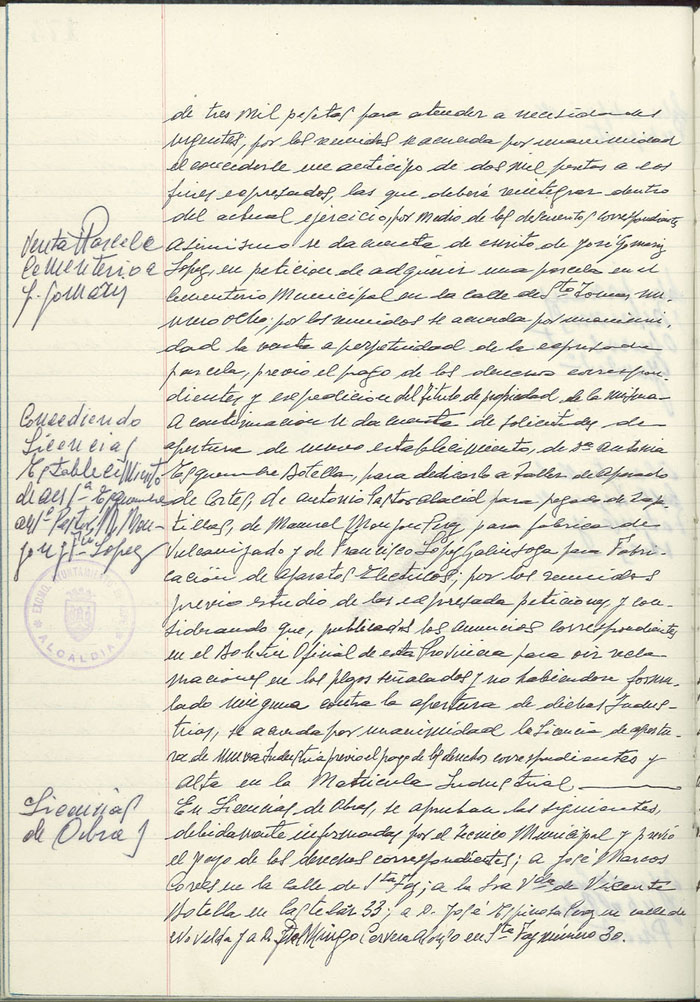 de tres mil pesetas para atender a necesidades
urgentes; por los reunidos se acuerda por unanimidad
el concederle un anticipo de dos mil pesetas a los
fines expresados, las que deberá reintegrar dentro
del actual ejercicio, por medio de los descuentos correspondientes
Venta Parcela
Cementerio a
J. Gomariz
Asimismo se da cuenta de escrito de José Gomariz
Lopez, en peticion de adquirir una parcela en el
Cementerio Municipal en la calle de Sto Tomas, nú-
mero ocho; por los reunidos se acuerda por unanimi-
dad la venta a perpetuidad de la expresada
parcela, previo el pago de los derechos correspon-
dientes y expedicion del título de propiedad de la misma
Concediendo
Licencias
Establecimiento
A continuacion se da cuenta de solicitudes de
apertura de nuevo establecimiento, de Dª Antonia
Esquembre Botella, para dedicarlo a Taller de Aparado
de Cortes, de Antonio Pastor Alacid para pegado de zapa-
tillas, de Manuel Monzon Puig para fabrica de
Vulcanizado y de Francisco López Galinsoga para Fabri-
cación de Aparatos Electricos; por los reunidos
previo estudio de las expresadas peticiones y con-
siderando que, publicados los anuncios correspondientes
en el Boletin Oficial de esta Provincia para oir recla-
maciones en los plazos señalados y no habiendose formu-
lado ninguna contra la apertura de dichas Indus-
trias, se acuerda por unanimidad la Licencia de apertu-
ra de nueva Industria previo el pago de los derechos correspondientes y
alta en la Matricula Industrial.
ALCALDIA
Licencias
de Obras
En Licencias de Obras, se aprueban las siguientes,
debidamente informadas por el tecnico Municipal y previo
el pago de los derechos correspondientes; a José Marcos
en la calle de Sta Faz; a la Sra Vda de Vicente
Botella en Castelar 33; a D. José Espinosa en calle de
Novelda y a D. Domingo Cervera Alonso en Sta Faz número 30.